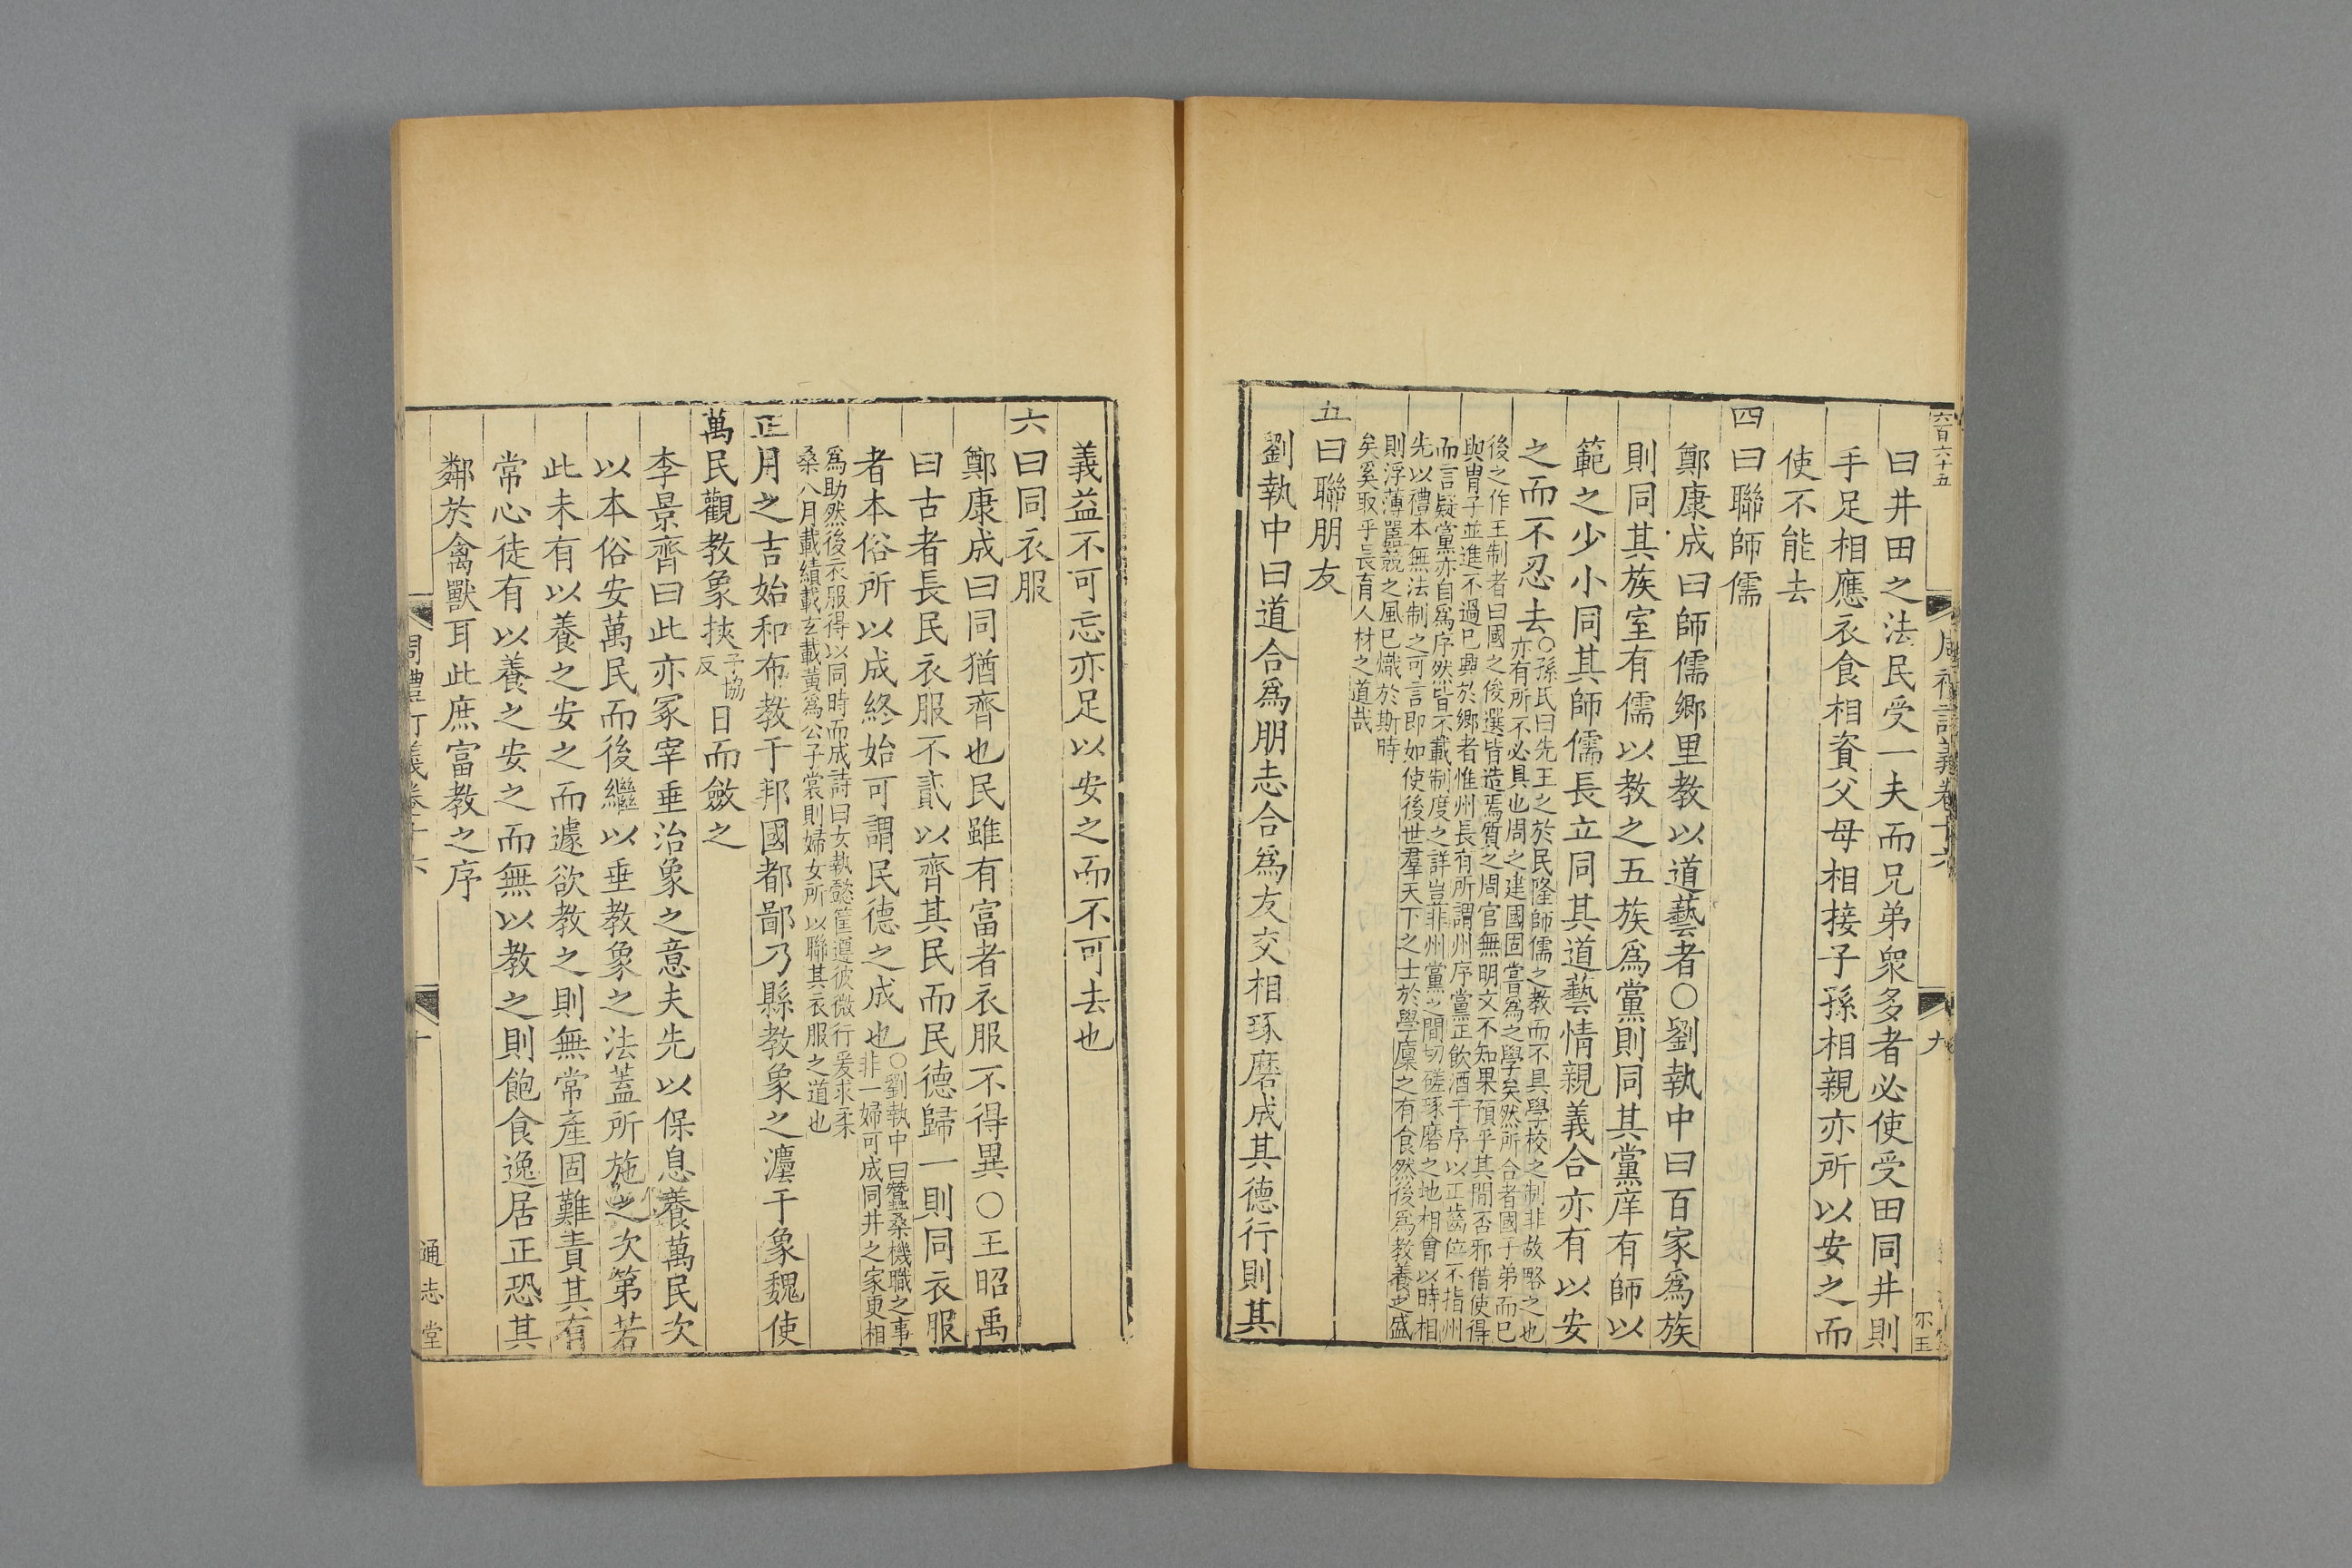 六百六十五
周禮訂義卷十六
九
曰井田之法民受一夫而兄弟衆多者必使受田同井則
手足相應衣食相資父母相接子孫相親亦所以安之而
使不能去
四曰聯師儒
鄭康成曰師儒鄉里教以道藝者○劉執中曰百家爲族
則同其族室有儒以教之五族爲黨則同其黨庠有師以
範之少小同其師儒長立同其道藝情親義合亦有以安
之而不忍去
○孫氏曰先王之於民隆師儒之教而不具學校之制非故略之也
亦有所不必具也周之建國固嘗爲之學矣然所合者國子弟而已
後之作王制者曰國之俊選皆造焉質之周官無明文不知果預乎其間否邪借使得
與胄子並進不過已興於鄉者惟州長有所謂州序黨正飲酒于序以正齒位不指州
而言疑黨亦自爲序然皆不載制度之詳豈非州黨之間切磋琢磨之地相會以時相
先以禮本無法制之可言即如使後世羣天下之士於學廩之有食然後爲教養之盛
則浮薄嚚競之風已熾於斯時
矣奚取乎長育人材之道哉
五曰聯朋友
劉執中曰道合爲朋志合爲友交相琢磨成其德行則其
義益不可忘亦足以安之而不可去也
六曰同衣服
鄭康成曰同猶齊也民雖有富者衣服不得異○王昭禹
曰古者長民衣服不貳以齊其民而民德歸一則同衣服
者本俗所以成終始可謂民德之成也
○劉執中曰蠶桑機職之事
非一婦可成同井之家更相
爲助然後衣服得以同時而成詩曰女執懿筐遵彼微行爰求柔
桑八月載績載玄載黃爲公子裳則婦女所以聯其衣服之道也
正月之吉始和布教于邦國都鄙乃縣教象之灋于象魏使
萬民觀教象挾
子協
反
日而斂之
李景齊曰此亦冢宰垂治象之意夫先以保息養萬民次
以本俗安萬民而後繼以垂教象之法蓋所施之次第若
此未有以養之安之而遽欲教之則無常產固難責其有
常心徒有以養之安之而無以教之則飽食逸居正恐其
鄰於禽獸耳此庶富教之序
周禮訂義卷十六
十
通志堂